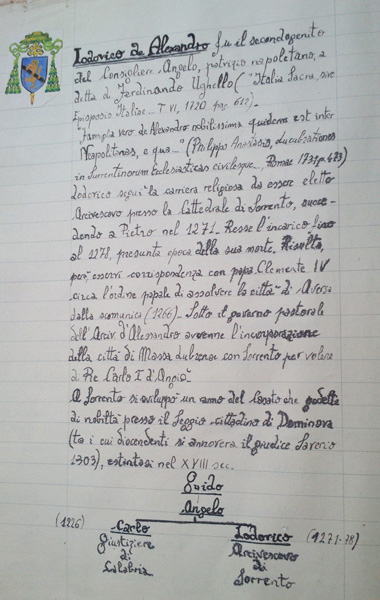 Lodovico de Alexandro fu il secondogenito
del Consigliere Angelo, patrizio napoletano, a
detta di Ferdinando Ughello ("Italia Sacra, sive
Episcopis Italiae... T VI, 1720 pag. 612)
"Familia vero de Alexandro nobilissima quidem est inter
Neapolitanas, e qua..." (Philippo Anastasio, Lucubrationes
in Surrentinorum Ecclesiasticas civilesque..., Romae 1731 p. 473)
Lodovico seguì la carriera religiosa da essere eletto
Arcivescovo presso la Cattedrale di Sorrento, succe-
dendo a Pietro nel 1271. Resse l'incarico fino
al 1278, presunta epoca della sua morte. Risulta,
però esservi corrispondenza con papa Clemente IV
circa l'ordine papale di assolvere la città di Aversa
dalla scomunica (1266). Sotto il governo pastorale
dell'Arciv. d'Alessandro avvenne l'incorporazione
della città di Massa Lubrense con Sorrento per volere
di Re Carlo I d'Angiò
A Sorrento si sviluppò un ramo del Casato che godette
di nobiltà presso il Seggio cittadino di Dominova
(tra i cui discendenti si annovera il giudice Saverio
1303), estintasi nel XVIII sec.
Guido
Angelo
(1226) Carlo Lodovico (1271-78)
Giustiziere Arcivescovo
di di
Calabria Sorrento